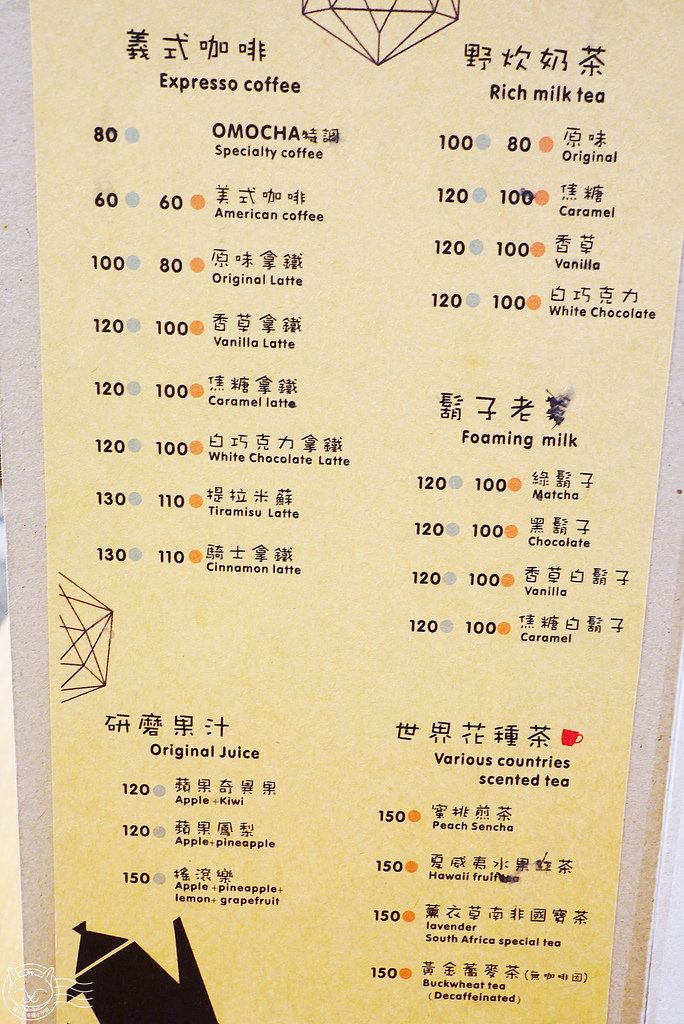 義式咖啡
Expresso coffee
80 OMOCHA特調
Specialty coffee
60 60 美式咖啡
American coffee
100 80 原味拿鐵
Original Latte
120 100 香草拿鐵
Vanilla Latte
120 100 焦糖拿鐵
Caramel latte
120 100 白巧克力拿鐵
White Chocolate Latte
130 110 提拉米蘇
Tiramisu Latte
130 110 騎士拿鐵
Cinnamon latte
野炊奶茶
Rich milk tea
100 80 原味
Original
120 100 焦糖
Caramel
120 100 香草
Vanilla
120 100 白巧克力
White Chocolate
鬍子老
Foaming milk
120 100 綠鬍子
Matcha
120 100 黑鬍子
Chocolate
120 100 香草白鬍子
Vanilla
120 100 焦糖白鬍子
Caramel
研磨果汁
Original Juice
120 蘋果奇異果
Apple +Kiwi
120 蘋果鳳梨
Apple+pineapple
150 搖滾樂
Apple +pineapple+
lemon+ grapefruit
世界花種茶
Various countries
scented tea
150 蜜桃煎茶
Peach Sencha
150 夏威夷水果茶
Hawaii fruit
150 薰衣草南非國寶茶
lavender
South Africa special tea
150 黃金蕎麥茶(無咖啡因)
Buckwheat tea
(Decaffeinated)